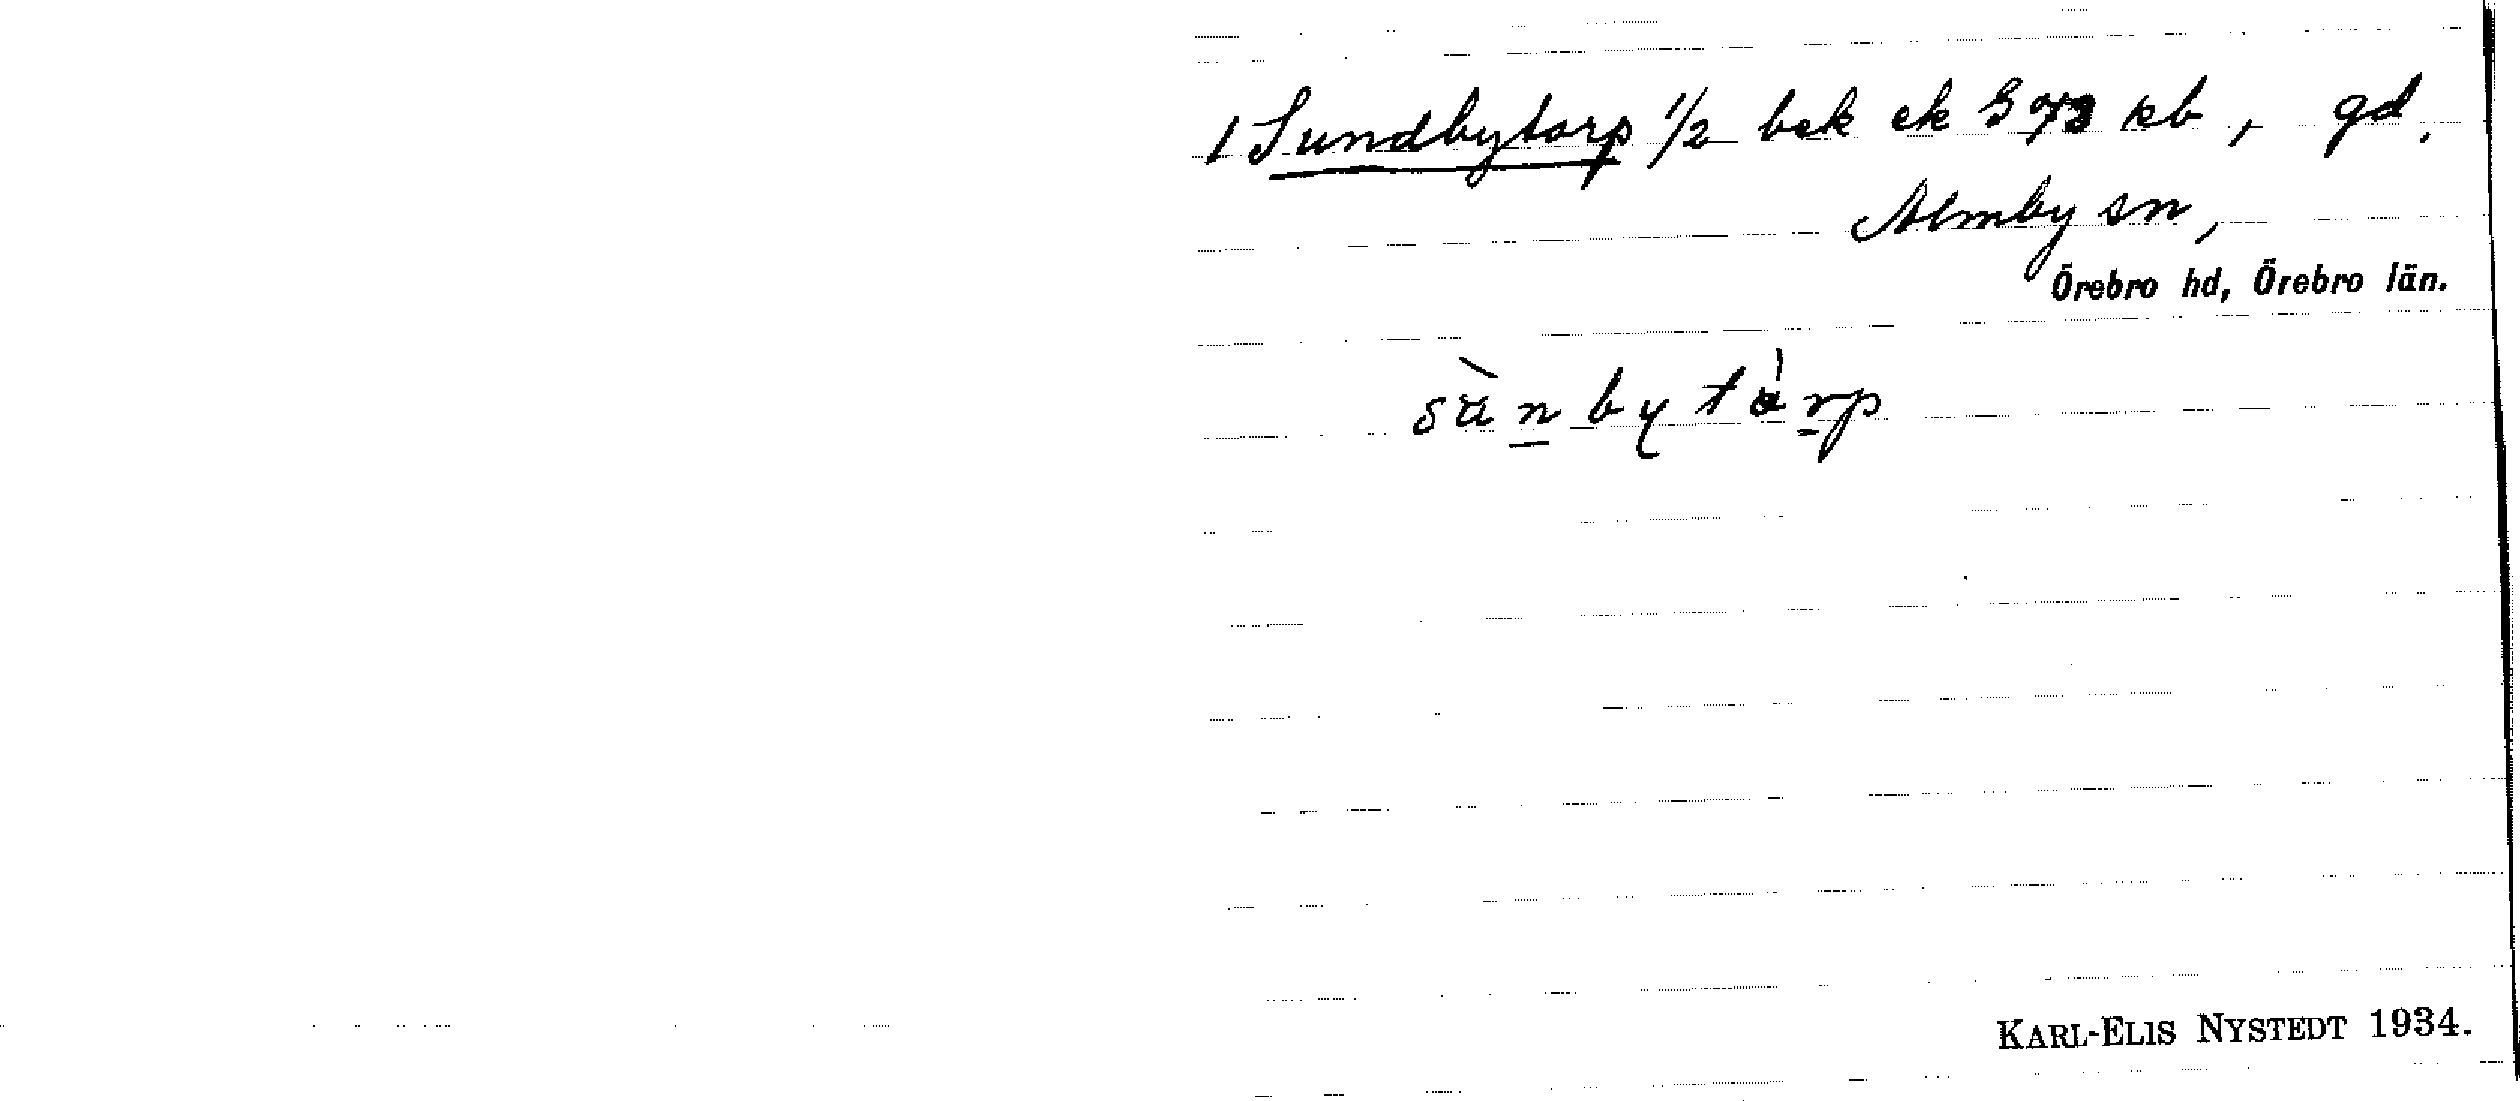 1 Sundbytorp 1/2 bek ek 573 kb, gd.
Almby sn,
Örebro hd, Örebro län.
sùnbytàrp
KARL-ELIS NYSTEDT 1934.